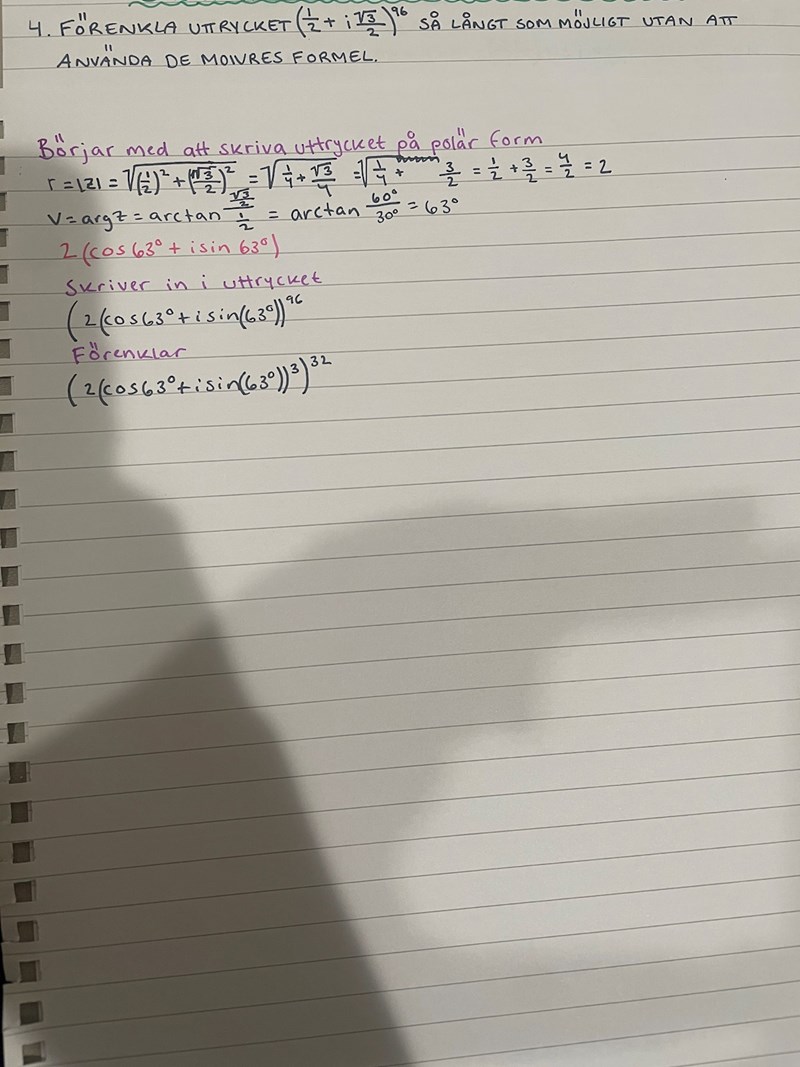 4. FÖRENKLA UTTRYCKET (1/2 + i √3/2)^96 SÅ LÅNGT SOM MÖJLIGT UTAN ATT
ANVÄNDA DE MOIVRES FORMEL.
Börjar med att skriva uttrycket på polär form
r = |z| = √((1/2)² + (√3/2)²) = √(1/4 + √3/4) = √(1/4 + 3/2 = 1/2 + 3/2 = 4/2 = 2
v = arg z = arctan (√3/2)/(1/2) = arctan 60°/30° = 63°
2(cos 63° + i sin 63°)
Skriver in i uttrycket
(2(cos63° + i sin(63°))^96
Förenklar
(2(cos63° + i sin(63°))^3)^32